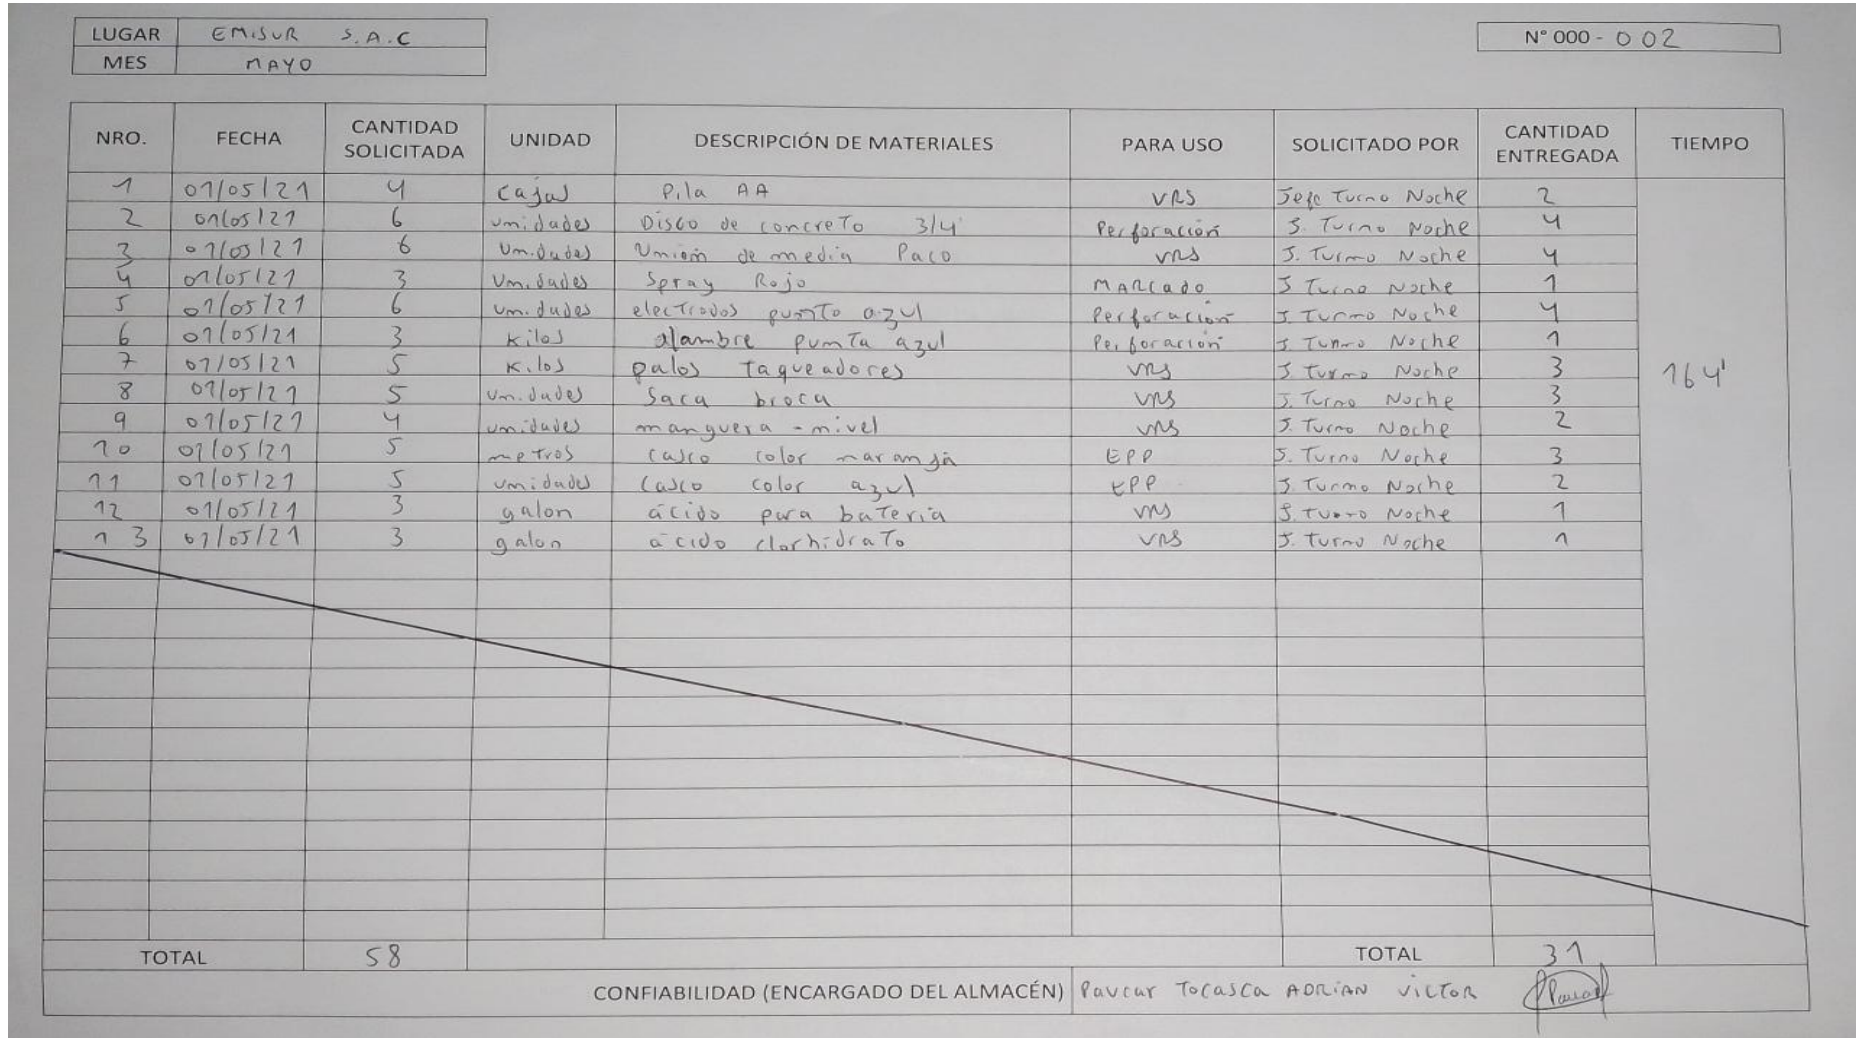 LUGAR EMISUR S.A.C N° 000 - 002
MES MAYO
NRO. FECHA CANTIDAD SOLICITADA UNIDAD DESCRIPCIÓN DE MATERIALES PARA USO SOLICITADO POR CANTIDAD ENTREGADA TIEMPO
1 01/05/21 4 cajas Pila AA VRS Jefe Turno Noche 2
2 01/05/21 6 unidades Disco de concreto 3/4' Perforación J. Turno Noche 4
3 01/05/21 6 Unidades Unión de media Paco VRS J. Turno Noche 4
4 01/05/21 3 Unidades Spray Rojo MARCADO J Turno Noche 1
5 01/05/21 6 unidades electrodos punto azul Perforación J. Turno Noche 4
6 01/05/21 3 Kilos alambre punta azul Perforación J Turno Noche 1
7 01/05/21 5 Kilos palos Taqueadores VRS J Turno Noche 3 164'
8 01/05/21 5 unidades Saca broca VRS J. Turno Noche 3
9 01/05/21 4 unidades manguera - nivel VRS J. Turno Noche 2
10 01/05/21 5 metros casco color naranja EPP J. Turno Noche 3
11 01/05/21 5 unidades casco color azul EPP J. Turno Noche 2
12 01/05/21 3 galon ácido para bateria VRS J. Turno Noche 1
13 01/05/21 3 galon ácido clorhidrato VRS J. Turno Noche 1
TOTAL 58 TOTAL 31
CONFIABILIDAD (ENCARGADO DEL ALMACÉN) Paucar Tocasca ADRIAN VICTOR